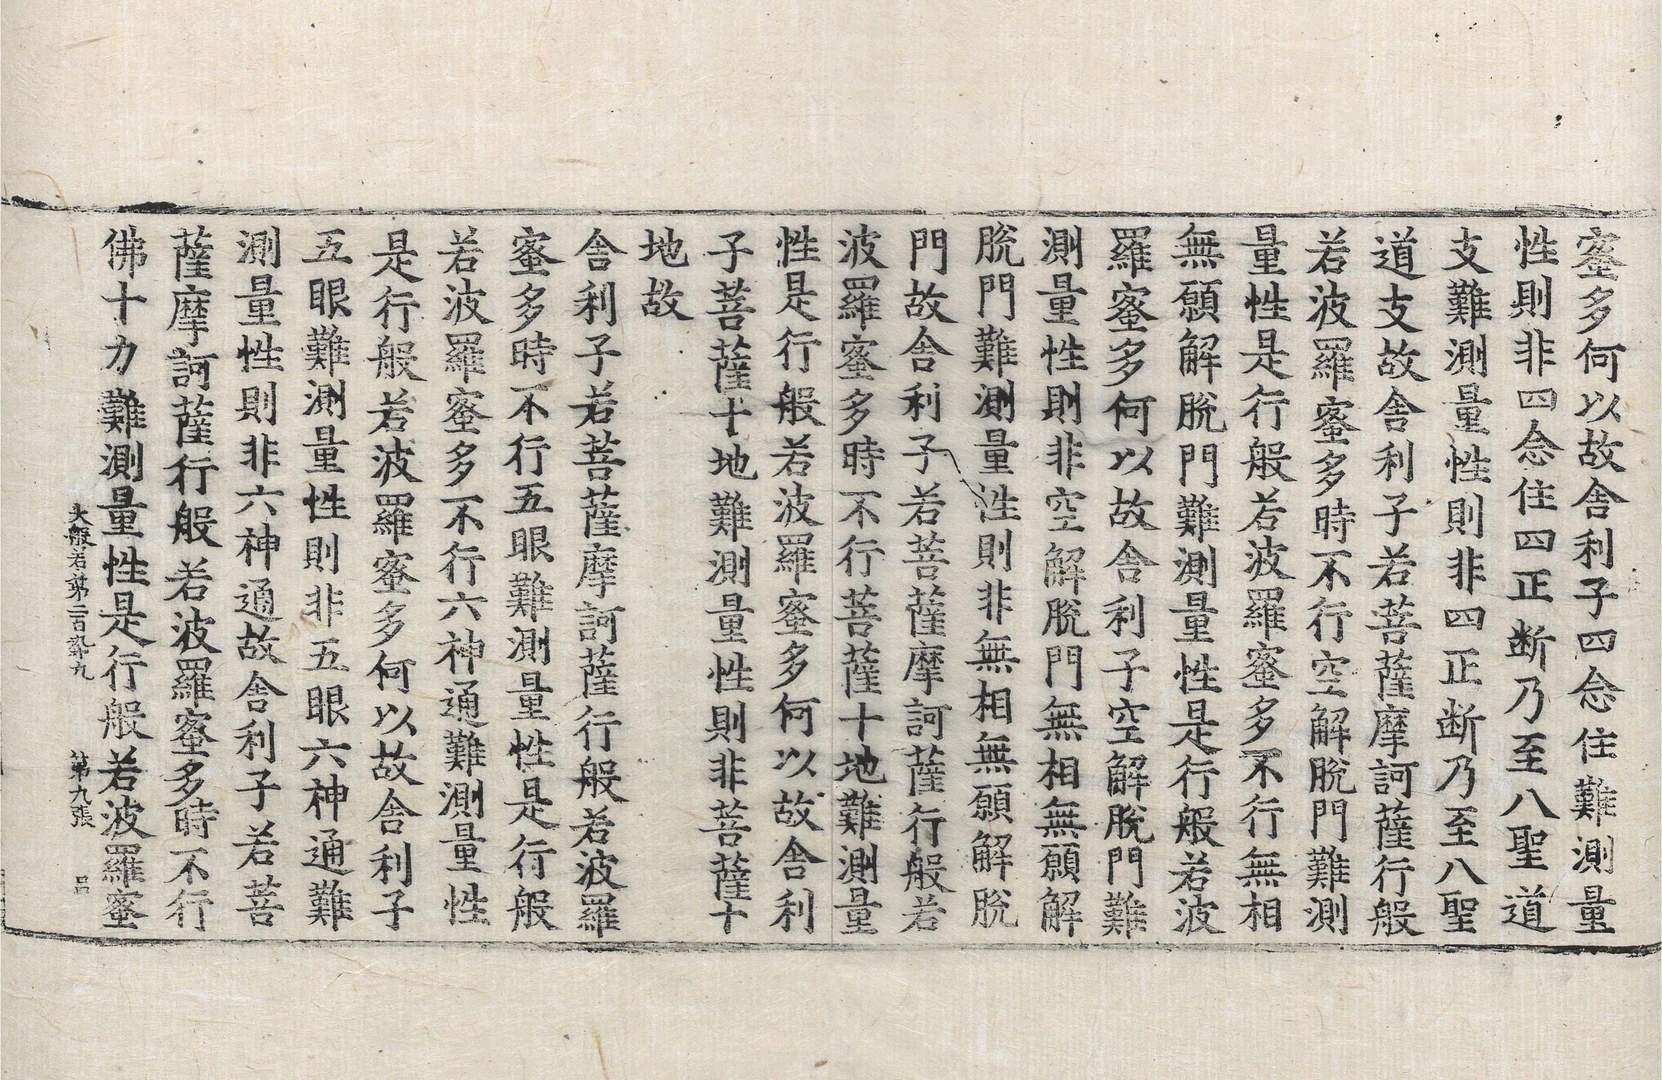 蜜多何以故舍利子四念住難測量
性則非四念住四正断乃至八聖道
支難測量性則非四正断乃至八聖
道支故舍利子若菩薩摩訶薩行般
若波羅蜜多時不行空解脫門難測
量性是行般若波羅蜜多不行無相
無願解脫門難測量性是行般若波
羅蜜多何以故舍利子空解脫門難
測量性則非空解脫門無相無願解
脫門難測量性則非無相無願解脫
門故舍利子若菩薩摩訶薩行般若
波羅蜜多時不行菩薩十地難測量
性是行般若波羅蜜多何以故舍利
子菩薩十地難測量性則非菩薩十
地故
舍利子若菩薩摩訶薩行般若波羅
蜜多時不行五眼難測量性是行般
若波羅蜜多不行六神通難測量性
是行般若波羅蜜多何以故舍利子
五眼難測量性則非五眼六神通難
測量性則非六神通故舍利子若菩
薩摩訶薩行般若波羅蜜多時不行
佛十力難測量性是行般若波羅蜜
大般若第二百九 第九張 呂